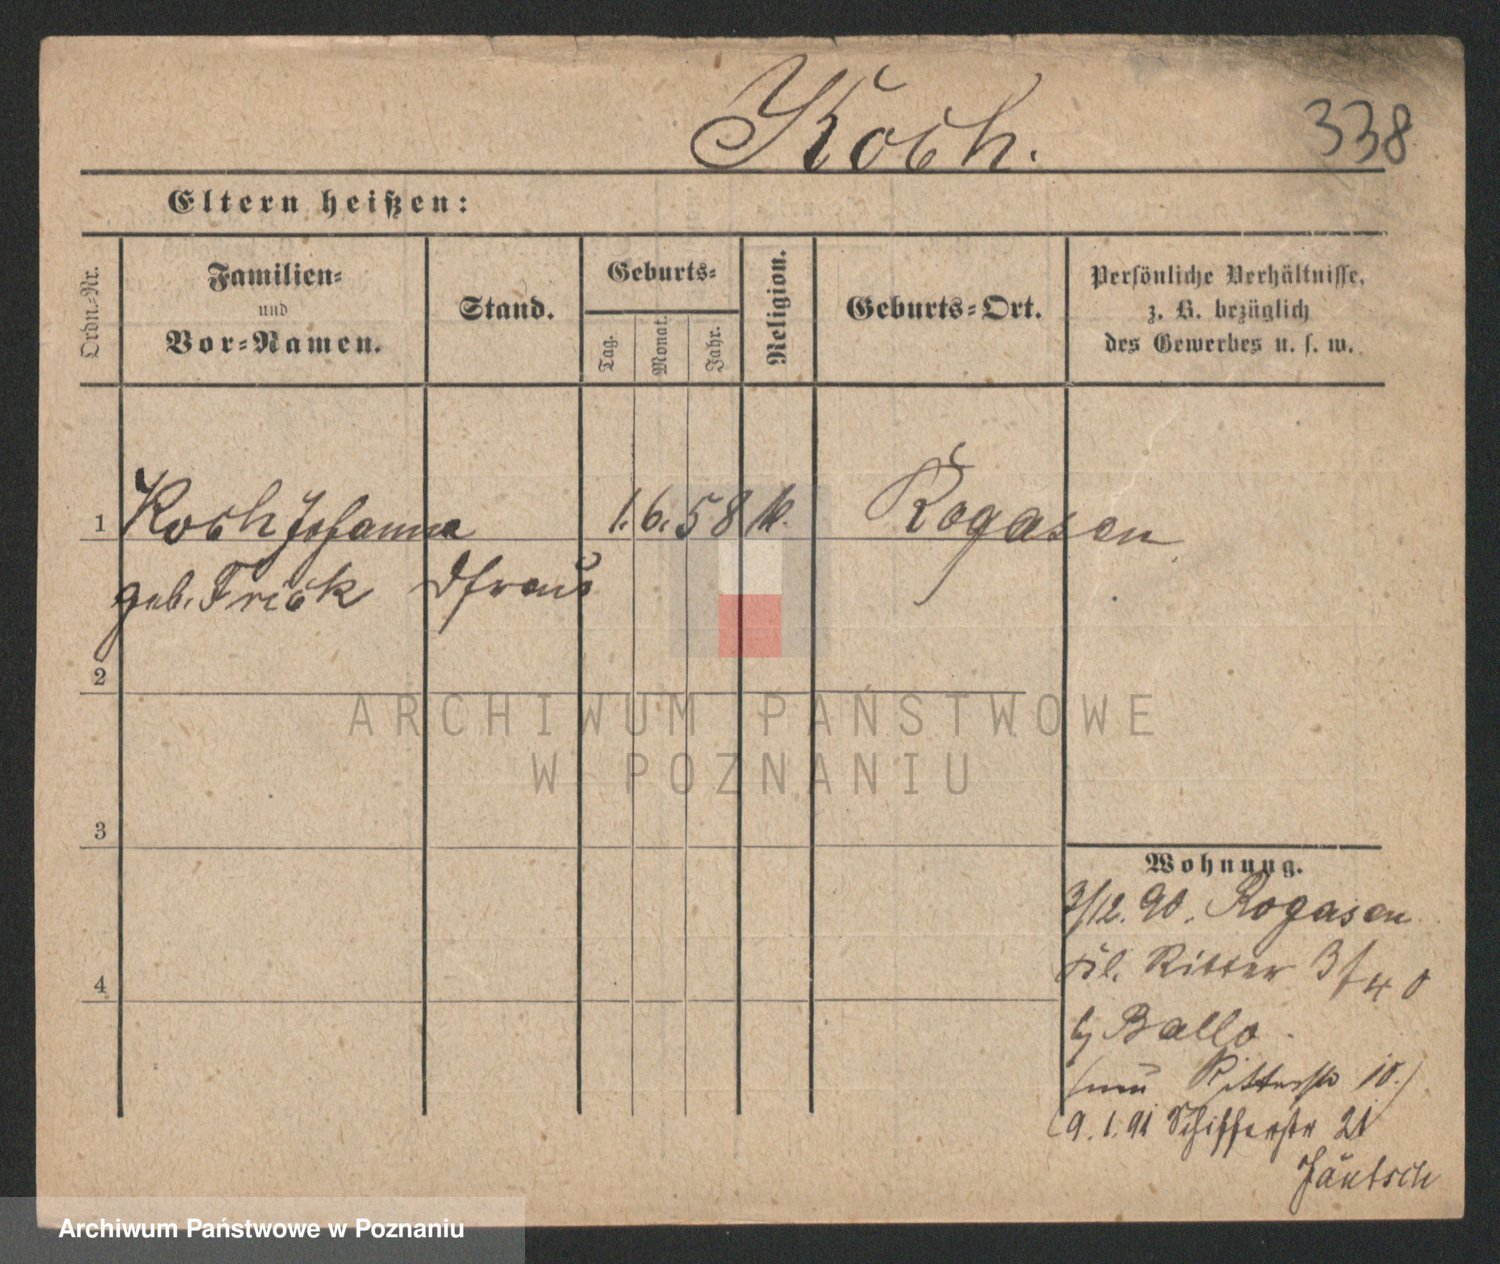 Koch.
338
Eltern heißen:
Ordn.-Nr.
Familien-
und
Vor-Namen.
Stand.
Geburts-
Tag.
Monat.
Jahr.
Religion.
Geburts-Ort.
Persönliche Verhältnisse,
z. B. bezüglich
des Gewerbes u. s. w.
1 Koch Johanna 1. 6. 58 k. Rogasen
geb. Frick
2
3
4
Wohnung.
3/12. 90. Rogasen
Ritter
Ballo
Ritterstr 10.)
9. 1. 91 Schifferstr 21
Jäntsch
ARCHIWUM PAŃSTWOWE
W POZNANIU
Archiwum Państwowe w Poznaniu